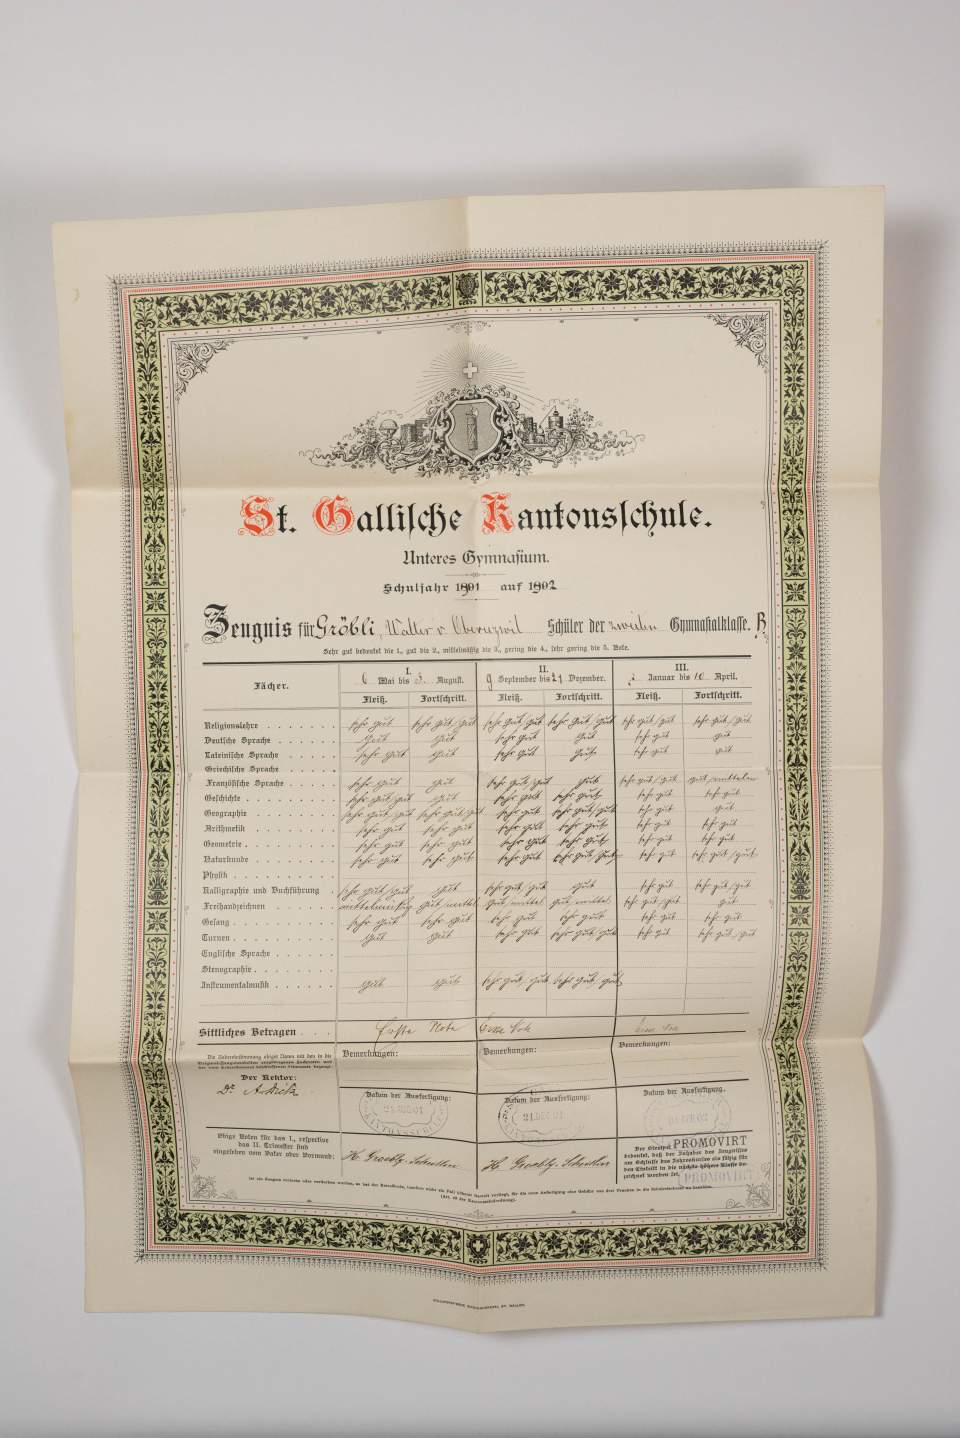 St. Gallische Kantonsschule.
Unteres Gymnasium.
Schuljahr 1901 auf 1902
Zeugnis für Gröbli, Walter v. Oberuzwil Schüler der zweiten Gymnasialklasse. B
Sehr gut bedeutet die 1., gut die 2., mittelmäßig die 3., gering die 4., sehr gering die 5. Note.
Fächer.
I. II. III.
6 Mai bis 3. August. 9 September bis 21 Dezember. Januar bis 10 April.
Fleiß. Fortschritt. Fleiß. Fortschritt. Fleiß. Fortschritt.
Religionslehre sehr gut sehr gut/gut sehr gut/gut sehr gut/gut sehr gut/gut sehr gut/gut
Deutsche Sprache gut gut sehr gut gut sehr gut gut
Lateinische Sprache sehr gut gut sehr gut gut sehr gut gut
Griechische Sprache
Französische Sprache sehr gut gut sehr gut/gut gut sehr gut/gut gut/mittelm
Geschichte sehr gut/gut gut sehr gut sehr gut sehr gut sehr gut
Geographie sehr gut/gut sehr gut/gut sehr gut sehr gut/gut sehr gut gut
Arithmetik sehr gut sehr gut sehr gut sehr gut sehr gut sehr gut
Geometrie sehr gut sehr gut sehr gut sehr gut sehr gut sehr gut
Naturkunde sehr gut sehr gut sehr gut sehr gut/gut sehr gut sehr gut/gut
Physik
Kalligraphie und Buchführung sehr gut/gut gut sehr gut/gut gut sehr gut sehr gut/gut
Freihandzeichnen mittelmäßig gut/mittel gut/mittel gut/mittel sehr gut/gut gut
Gesang sehr gut sehr gut sehr gut sehr gut sehr gut sehr gut
Turnen gut gut sehr gut sehr gut/gut sehr gut sehr gut/gut
Englische Sprache
Stenographie
Instrumentalmusik gut gut sehr gut/gut sehr gut/gut
Sittliches Betragen Erste Note Erste Note Erste Note
Bemerkungen: Bemerkungen: Bemerkungen:
Der Rektor:
Dr. A.
Datum der Ausfertigung: Datum der Ausfertigung: Datum der Ausfertigung.
KANTONSSCHULE
21.DEC.01
Obige Noten für das I., respektive
das II. Trimester sind
eingesehen vom Vater oder Vormund:
H. Groebly- H. Groebly-
Der Stempel PROMOVIRT
bedeutet, daß der Inhaber des Zeugnisses
am Schlusse des Jahreskurses als fähig für
den Eintritt in die nächste höhere Klasse be-
zeichnet worden ist.
PROMOVIRT